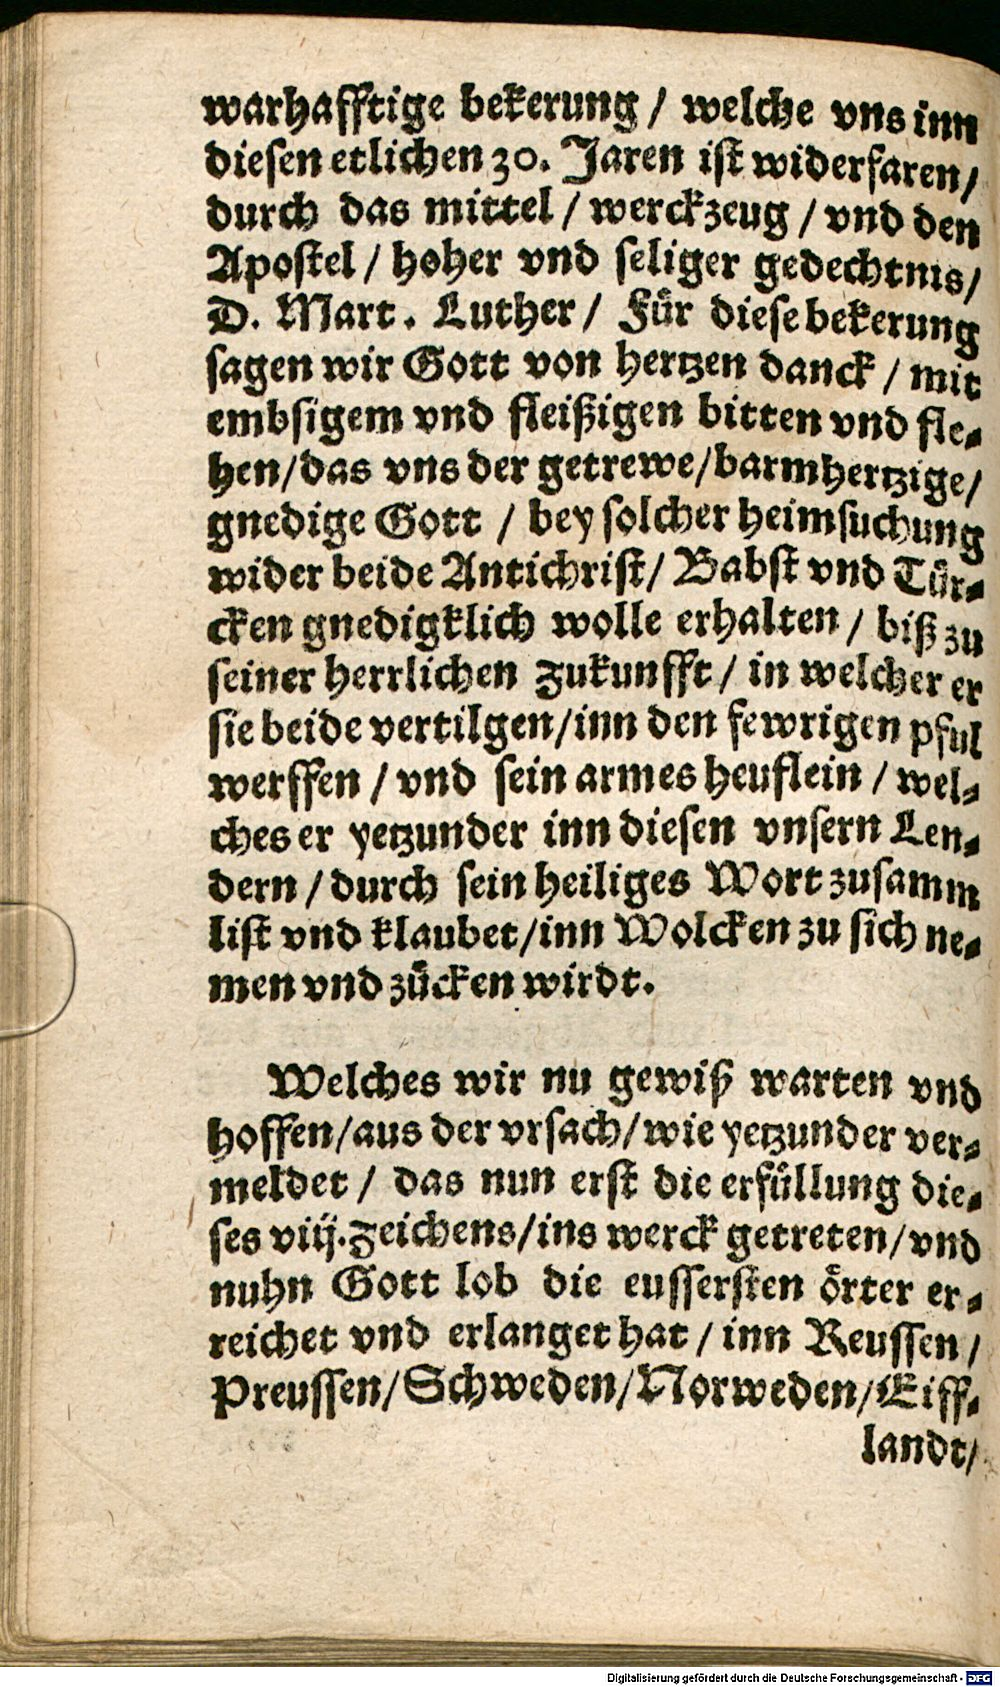 warhafftige bekerung / welche vns inn
diesen etlichen 30. Jaren ist widerfaren /
durch das mittel / werckzeug / vnd den
Apostel / hoher vnd seliger gedechtnis /
D. Mart. Luther / Für diese bekerung
sagen wir Gott von hertzen danck / mit
embsigem vnd fleißigen bitten vnd fle-
hen / das vns der getrewe / barmhertzige /
gnedige Gott / bey solcher heimsuchung
wider beide Antichrist / Babst vnd Tür-
cken gnedigklich wolle erhalten / biß zu
seiner herrlichen zukunfft / in welcher er
sie beide vertilgen / inn den fewrigen pful
werffen / vnd sein armes heuflein / wel-
ches er yetzunder inn diesen vnsern Len-
dern / durch sein heiliges Wort zusamm
list vnd klaubet / inn Wolcken zu sich ne-
men vnd zücken wirdt.
Welches wir nu gewiß warten vnd
hoffen / aus der vrsach / wie yetzunder ver-
meldet / das nun erst die erfüllung die-
ses viij. zeichens / ins werck getreten / vnd
nuhn Gott lob die eussersten örter er-
reichet vnd erlanget hat / inn Reussen /
Preussen / Schweden / Norweden / Eiff-
landt /
Digitalisierung gefördert durch die Deutsche Forschungsgemeinschaft - DFG